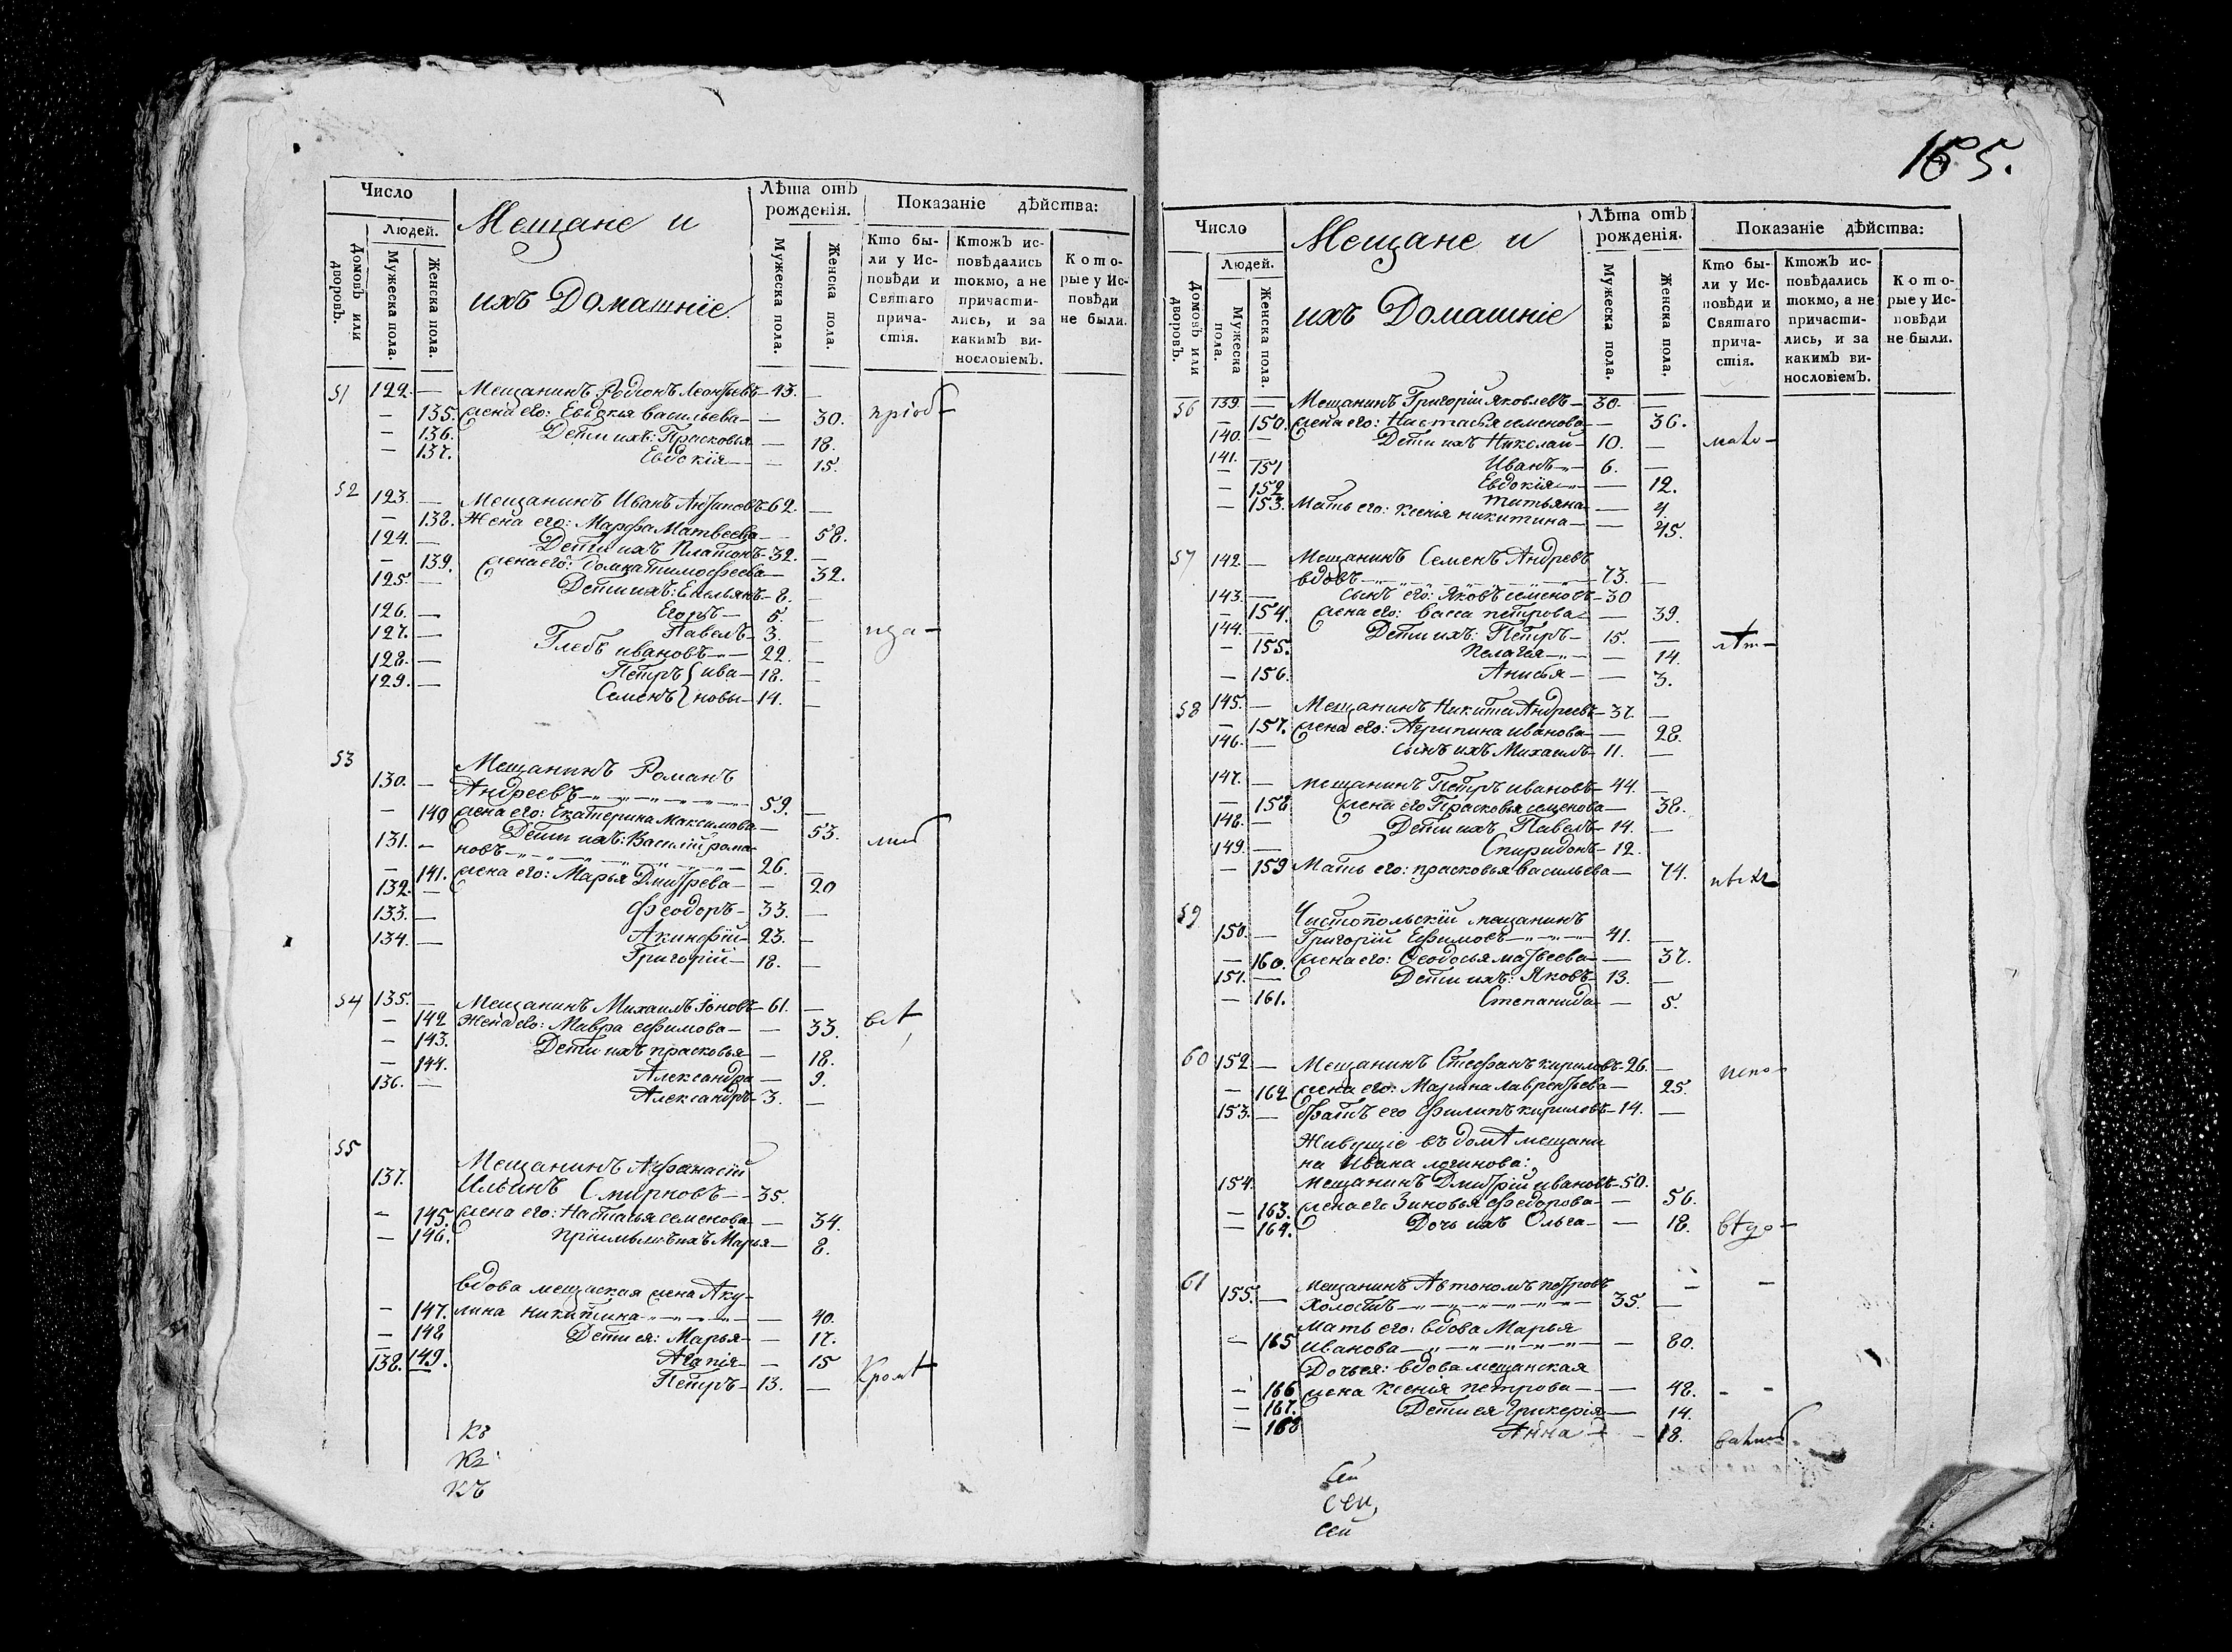 165.
Число
Людей.
Домовъ или дворовъ.
Мужеска пола.
Женска пола.
Мещане и
ихъ Домашніе.
Лѣта отъ рожденія.
Мужеска пола.
Женска пола.
Показаніе дѣйства:
Кто были у Исповѣди и Святаго причастія.
Ктожъ исповѣдались токмо, а не причастились, и за какимъ винословіемъ.
Которые у Исповѣди не были.
51 122. — Мещанинъ Родіонъ Леонтьевъ — 43. —
— 135. жена его: Евдокія васильева — — 30. пріоб —
— 136. Дети ихъ: Прасковья — 18.
— 137. Евдокія — — 15.
52 123. — Мещанинъ Иванъ Антиповъ — 62. —
— 138. Жена его: Марфа Матвеева — — 58.
124. — Дети ихъ Платонъ — 32. —
— 139. жена его: домна тимофеева — 32.
125. — Дети ихъ: Емельянъ — 8. —
126. — Егоръ — 5. —
127. — Павелъ — 3. — нда —
Глебъ ивановъ — 22. —
128. — Петръ } ива — 18. —
129. — Семенъ } новы — 14. —
53
130. — Мещанинъ Романъ
Андреевъ — 59. —
— 140 жена его: Екатерина Максимова — 53.
131. — Дети ихъ: Василій рома
новъ — 26. —
— 141. жена его: Марья Дмитрева — — 20
132. — Феодоръ — 33. —
133. — Акинфій — 23. —
134. — Григорій — 18. —
54 135. — Мещанинъ Михаилъ Іоновъ — 61. —
— 142 Жена его: Мавра ефимова — — 33. всѣ
— 143. Дети ихъ прасковья — 18.
— 144. Александра — 9.
136. — Александръ — 3. —
55
137. Мещанинъ Афанасій
Ильинъ Смирновъ — 35.
— 145. жена его: Настасья семенова — — 34.
— 146. пріимышъ ихъ Марья — 8.
вдова мещаская жена Аку-
— 147. лина никитина — — 40.
— 148 Дети ея: Марья — — 17.
— 149. Агапія — — 15 Кромѣ
138. Петръ — 13. —
Число
Людей.
Домовъ или дворовъ.
Мужеска пола.
Женска пола.
Мещане и
ихъ Домашніе
Лѣта отъ рожденія.
Мужеска пола.
Женска пола.
Показаніе дѣйства:
Кто были у Исповѣди и Святаго причастія.
Ктожъ исповѣдались токмо, а не причастились, и за какимъ винословіемъ.
Которые у Исповѣди не были.
56 139. — Мещанинъ Григорій яковлевъ — 30. —
— 150. жена его: Настасья семенова — — 36.
140. — Дети ихъ Николай — 10. —
141. Иванъ — 6. —
— 151 Евдокія — — 12.
— 152 татьяна — — 4.
— 153. Мать его: ксенія никитина — — 45.
57 142. — Мещанинъ Семенъ Андревъ
вдовъ — 73. —
143. — Сынъ его: яковъ семеновъ — 30
— 154. жена его: васса петрова — — 39.
144. — Дети ихъ: Петръ — 15. — лѣт —
— 155. Пелагея — — 14.
— 156. Анисья — — 3.
58 145. — Мещанинъ Никита Андреевъ — 37. —
— 157. жена его: Агрипина иванова — — 28.
146. — сынъ ихъ Михаилъ — 11. —
147. — мещанинъ Петръ ивановъ — 44. —
— 158 жена его Прасковья семенова — 38.
148. — Дети ихъ Павелъ — 14. —
149. — Спиридонъ — 12.
— 159 Мать его: прасковья васильева — 74.
59
150. — Чистопольскій мещанинъ
Григорій Ефимовъ — 41. —
— 160. жена его: Феодосья матвеева — — 37.
151. — Дети ихъ: Яковъ — 13. —
— 161. Степанида — — 5.
60 152 — Мещанинъ Стефанъ кириловъ — 26. —
— 162 жена его: Марина лаврентьева — 25.
153. — братъ его Филипъ кириловъ — 14. —
Живущіе въ домѣ мещани
на Ивана логинова:
154. Мещанинъ Дмитрій ивановъ — 50.
— 163. жена его Зиновья федорова — — 56.
— 164. Дочь ихъ Ольга — — 18.
61
155. — мещанинъ Автономъ петровъ
холостъ — 35. —
Мать его: вдова Марья
— 165 иванова — — 80.
Дочь ея: вдова мещанская
— 166 жена ксенія петрова — — 48.
— 167. Дети ея Гликерія — 14.
— 168 Анна — — 18.